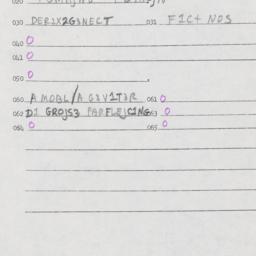 020
030 DER2X2G3NECT 031 FIC+ NOS
040 O
041 O
050 O
060 A MOBL/A G3V1T3R 061 O
062 D1 GROJS3 PARFLEJCING 063 O
064 O 065 O